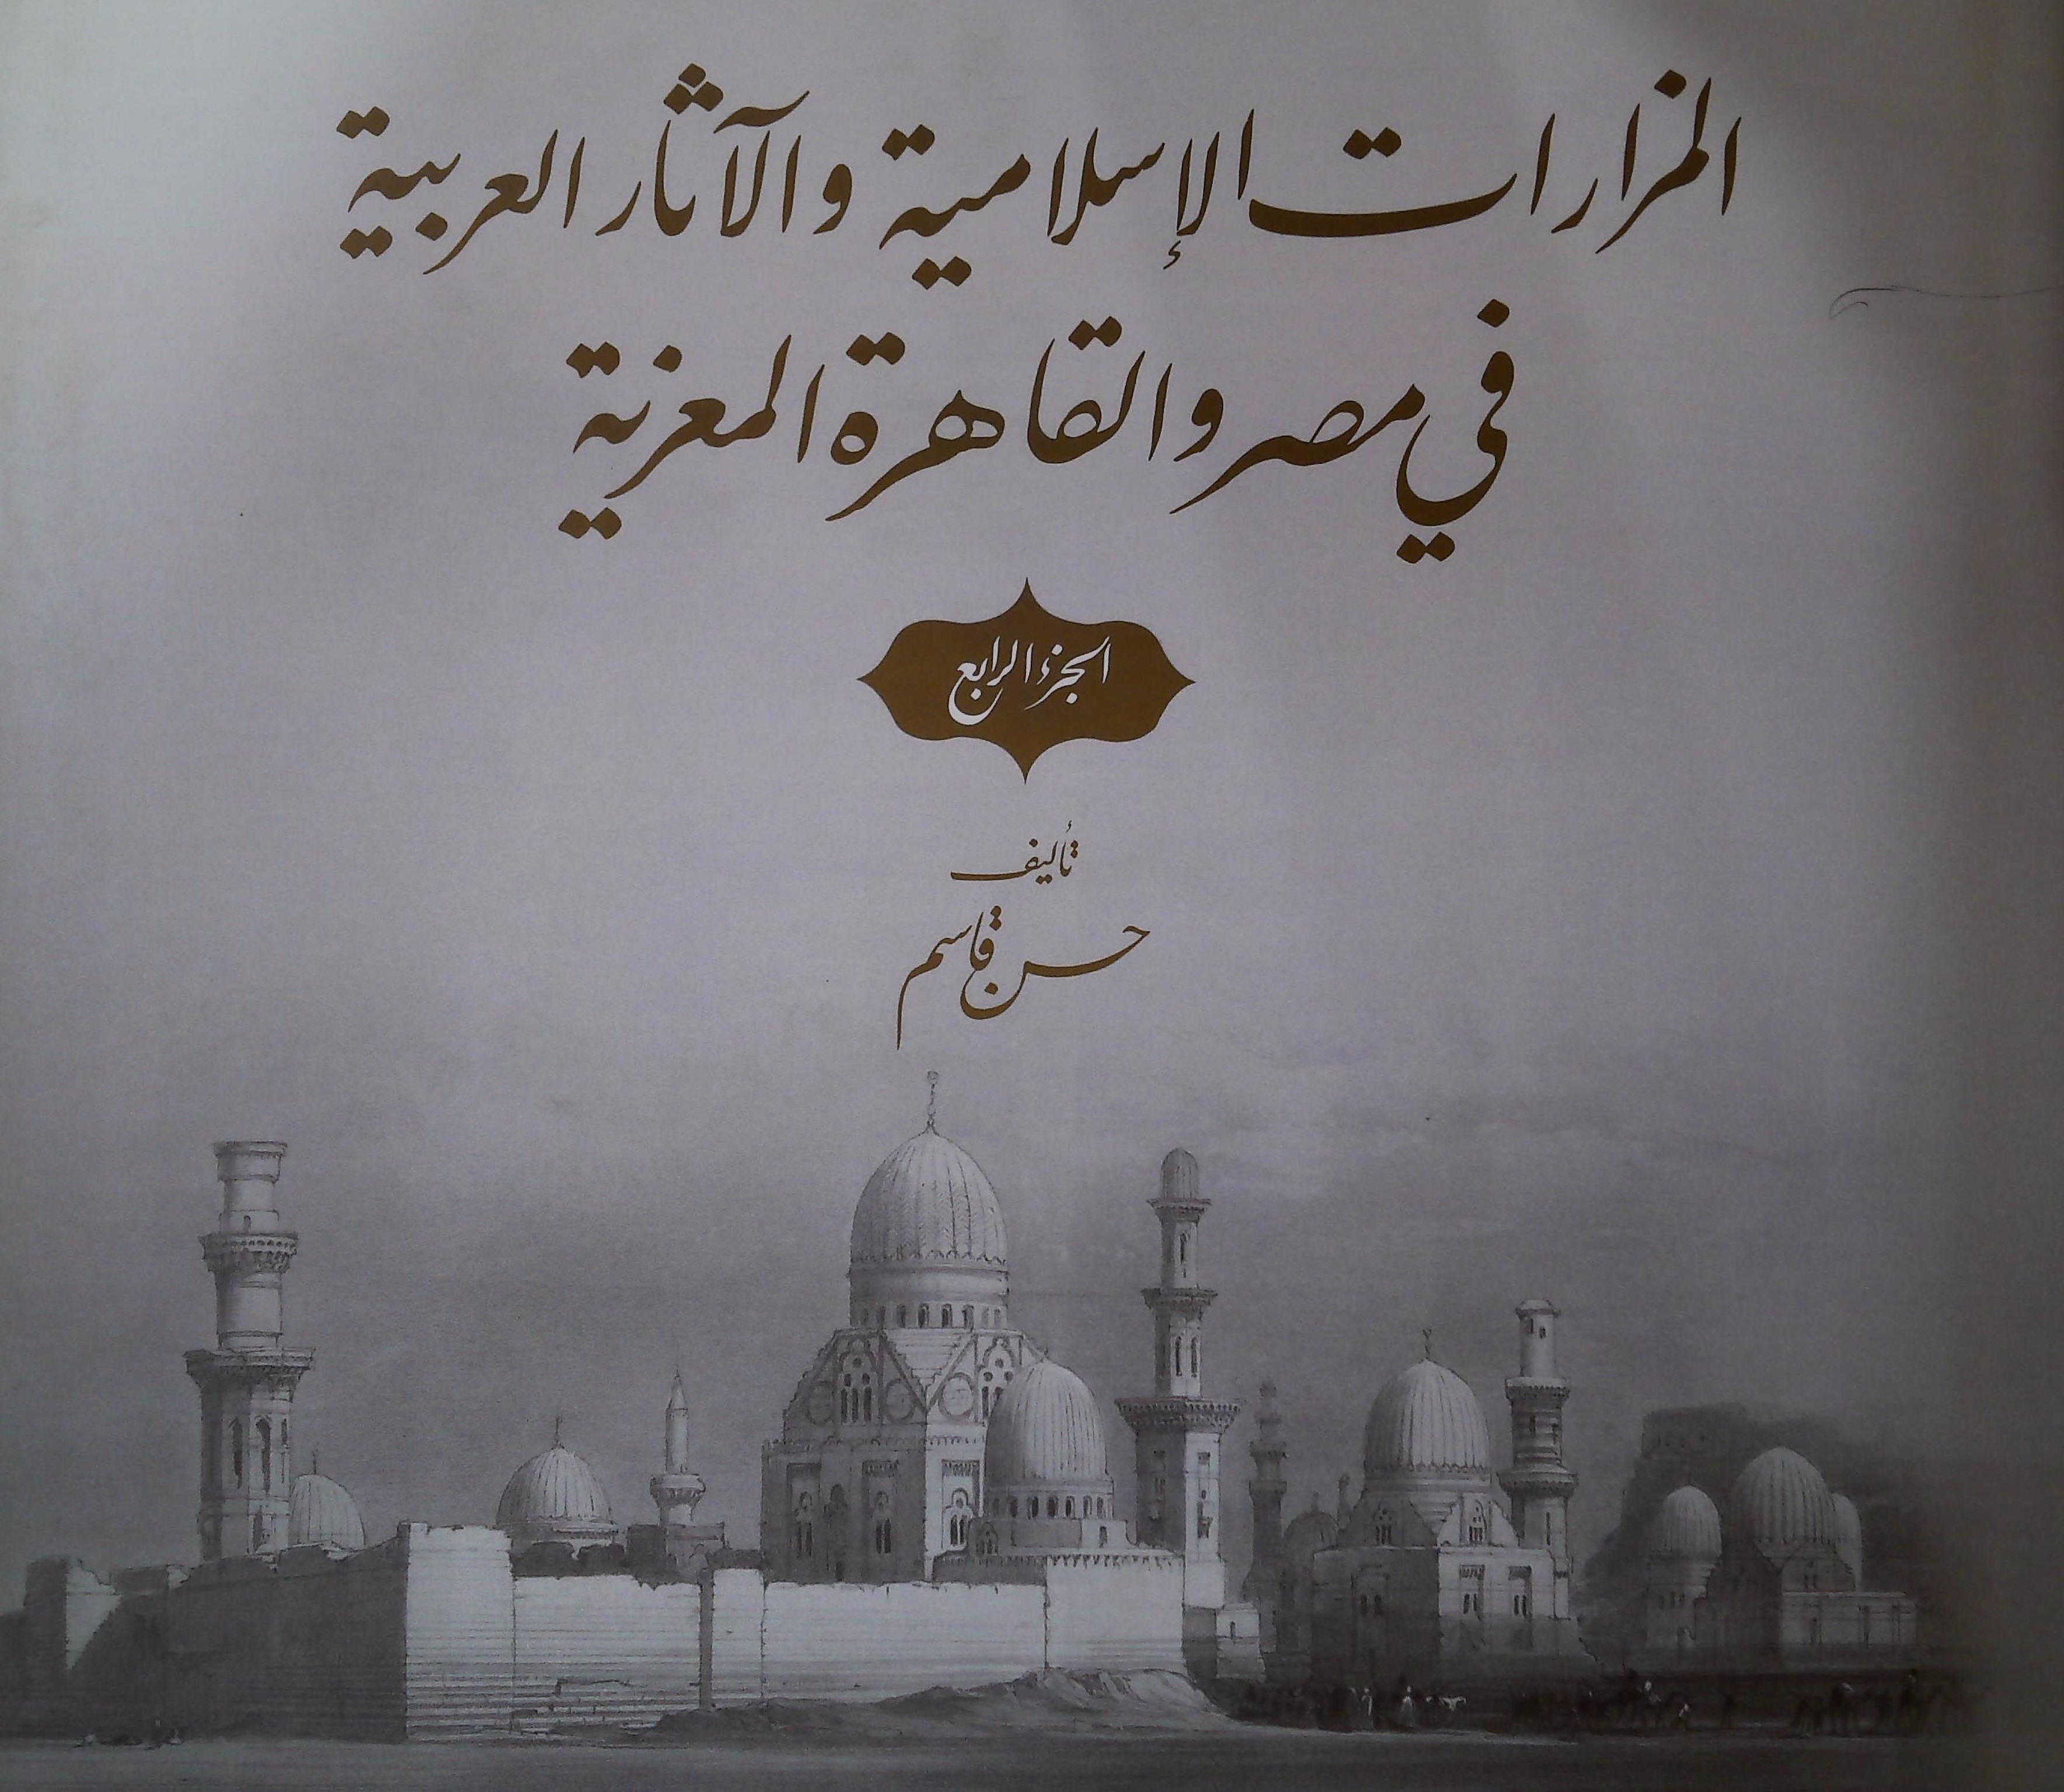 المزارات الإسلامية والآثار العربية
في مصر والقاهرة المعزية
الجزء الرابع
تأليف
حسن قاسم